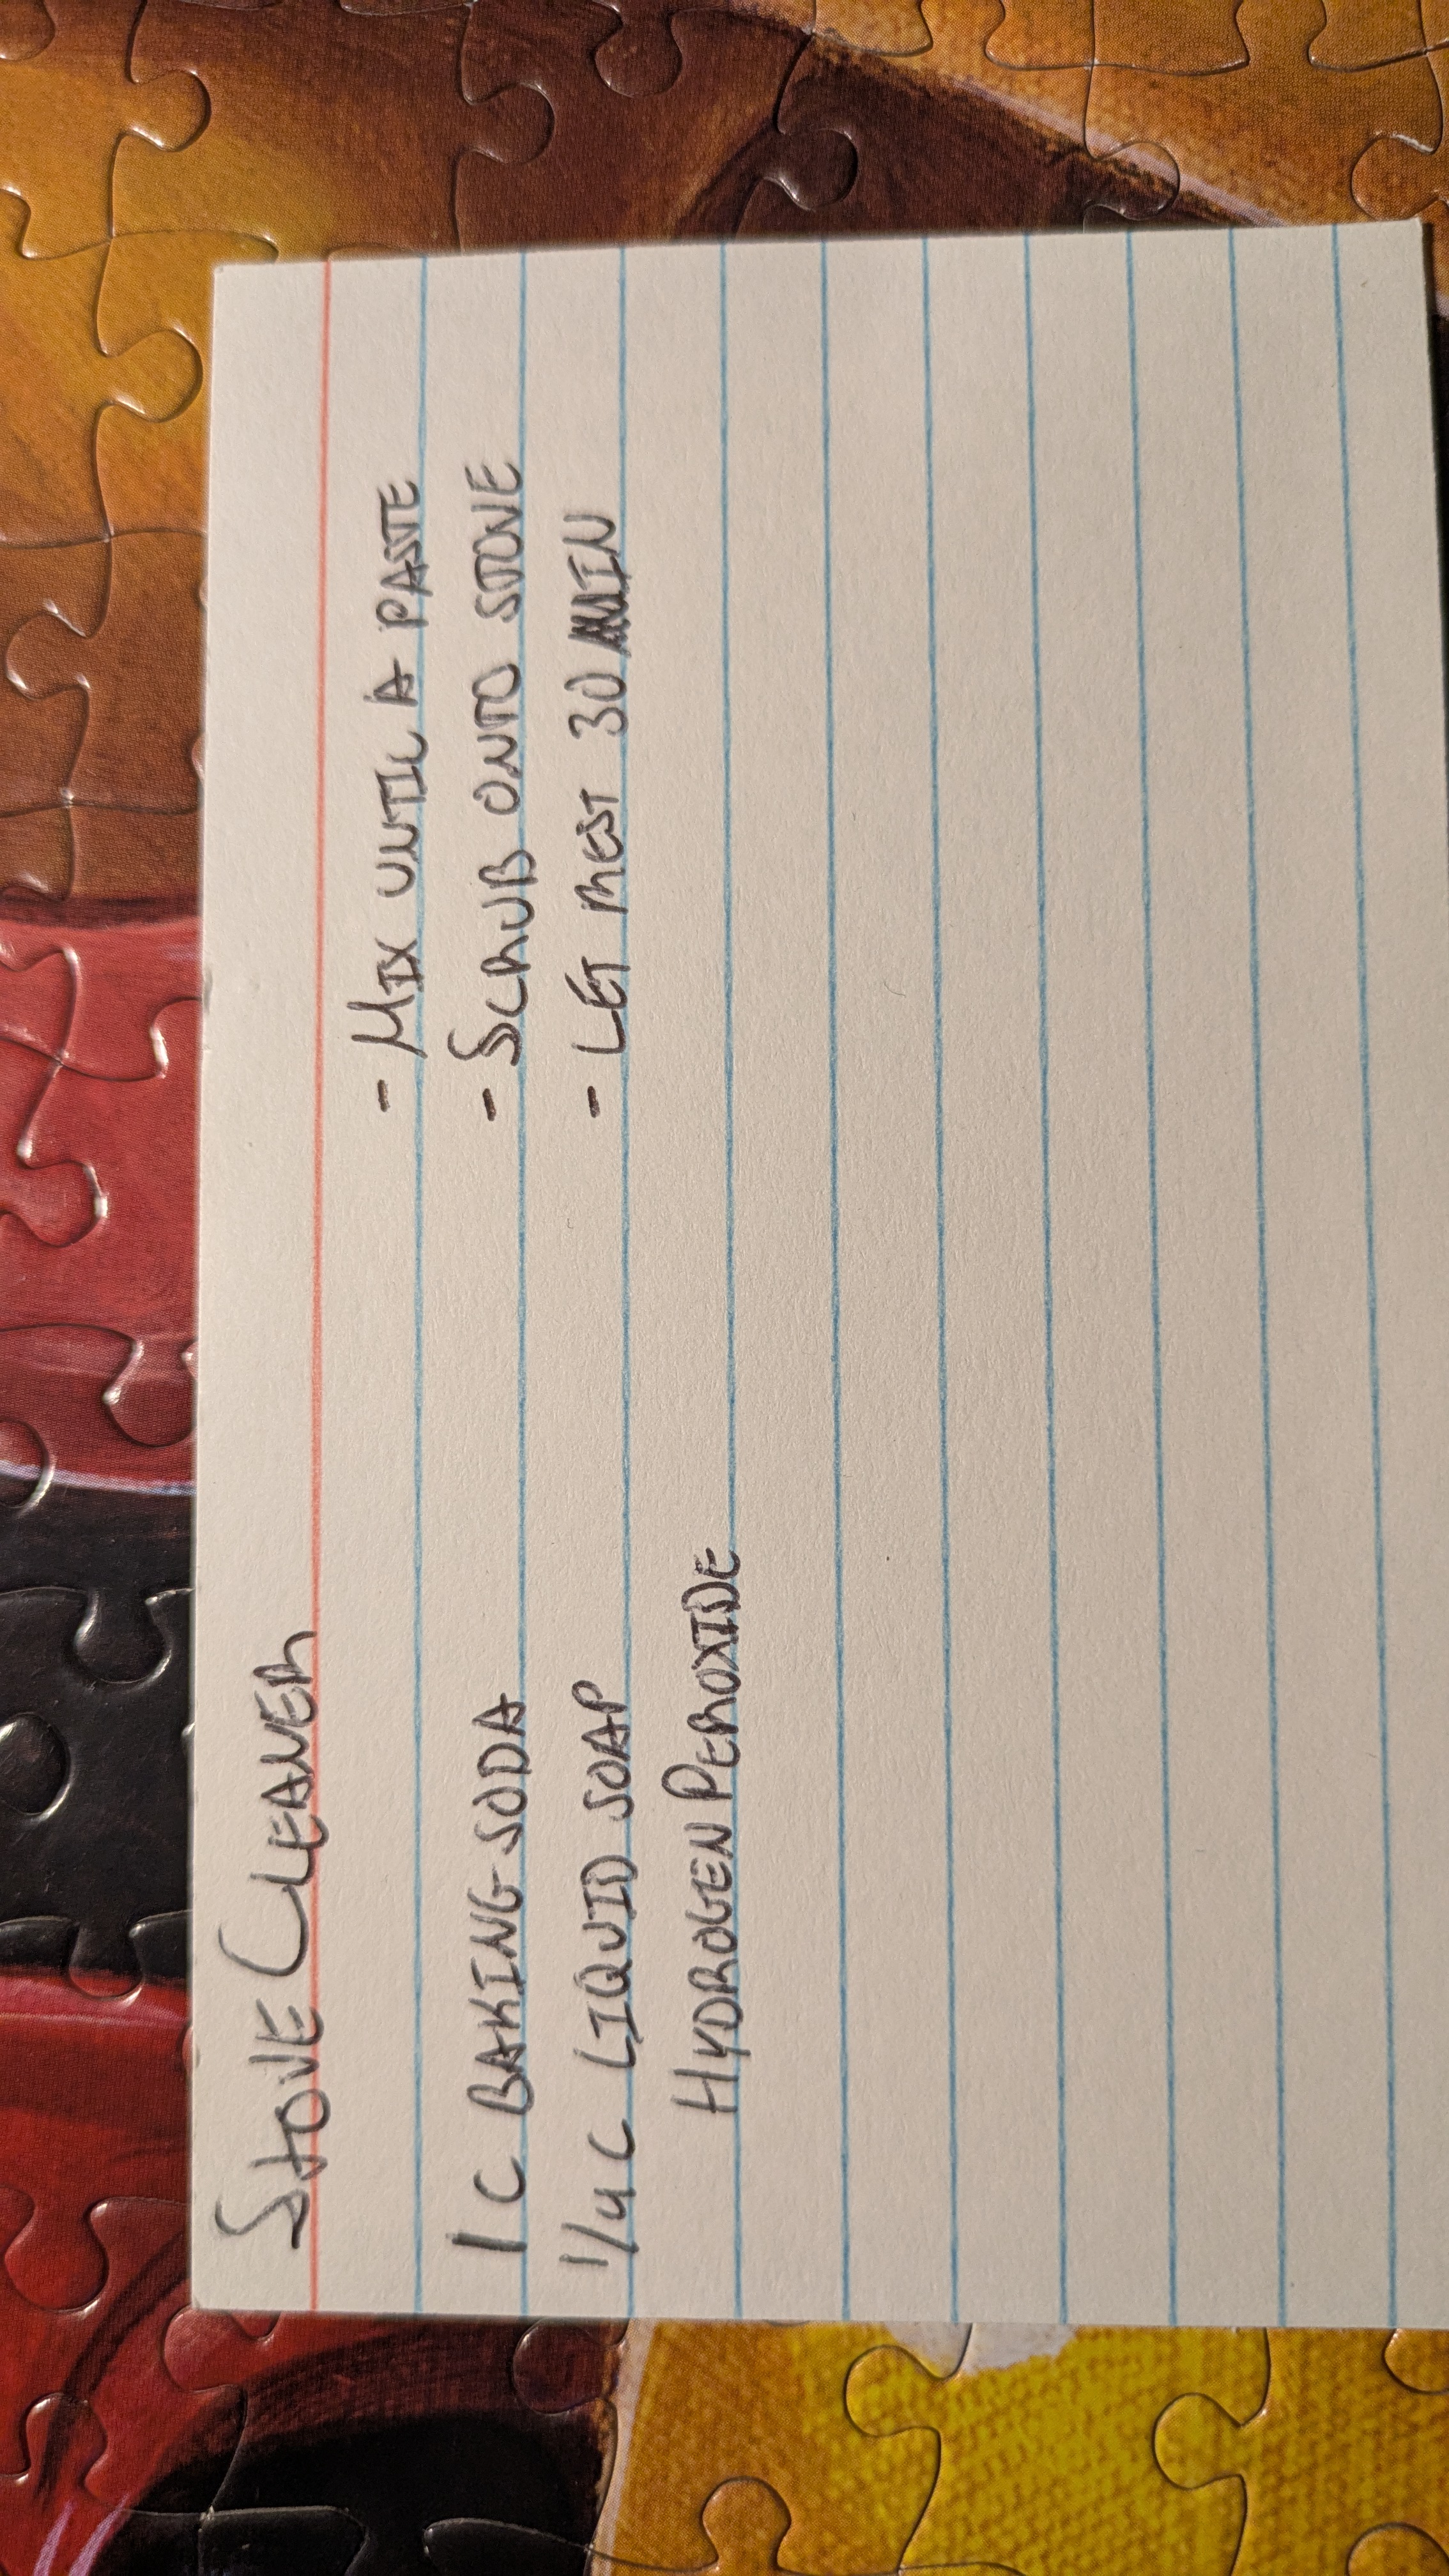 Stove Cleaner
1 C BAKING SODA
1/4 C LIQUID SOAP
HYDROGEN PEROXIDE
- MIX UNTIL A PASTE
- SCRUB ONTO STOVE
- LET REST 30 MIN